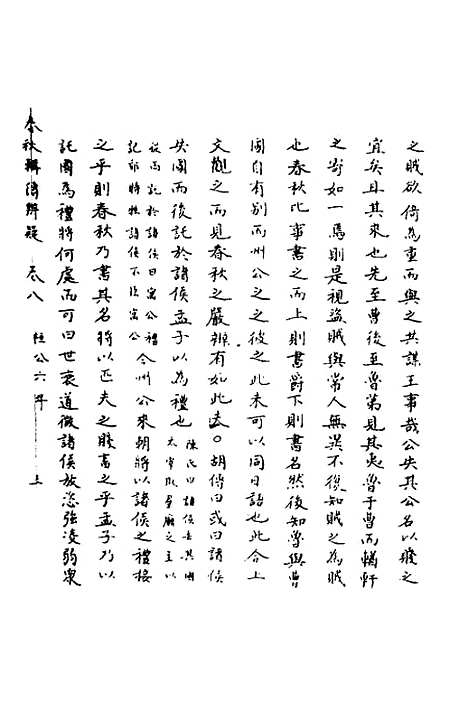 之賊欲倚為重而與之共謀王事哉公失其公名以廢之
宜矣且其來也先至曹後至魯第見其夷魯于曹而輶軒
之寄如一焉則是視盜賊與常人無異不復知賊之為賊
也春秋比事書之而上則書爵下則書名然後知魯與曹
國自有別而州公之之彼之此未可以同日語也此合上
文觀之而見春秋之嚴辨有如此夫○胡傳曰或曰諸侯
失國而後託於諸侯孟子以為禮也
陳氏曰諸侯去其國
大宰取羣廠之主以
從而託於諸侯曰寓公禮
記郊特牲諸侯不臣寓公
今州公來朝將以諸侯之禮接
之乎則春秋乃書其名將以匹夫之賤畜之乎孟子乃以
託國為禮將何處而可曰世衰道微諸侯放恣強凌弱眾
春秋辨傳辨疑 卷八 桓公六年 上